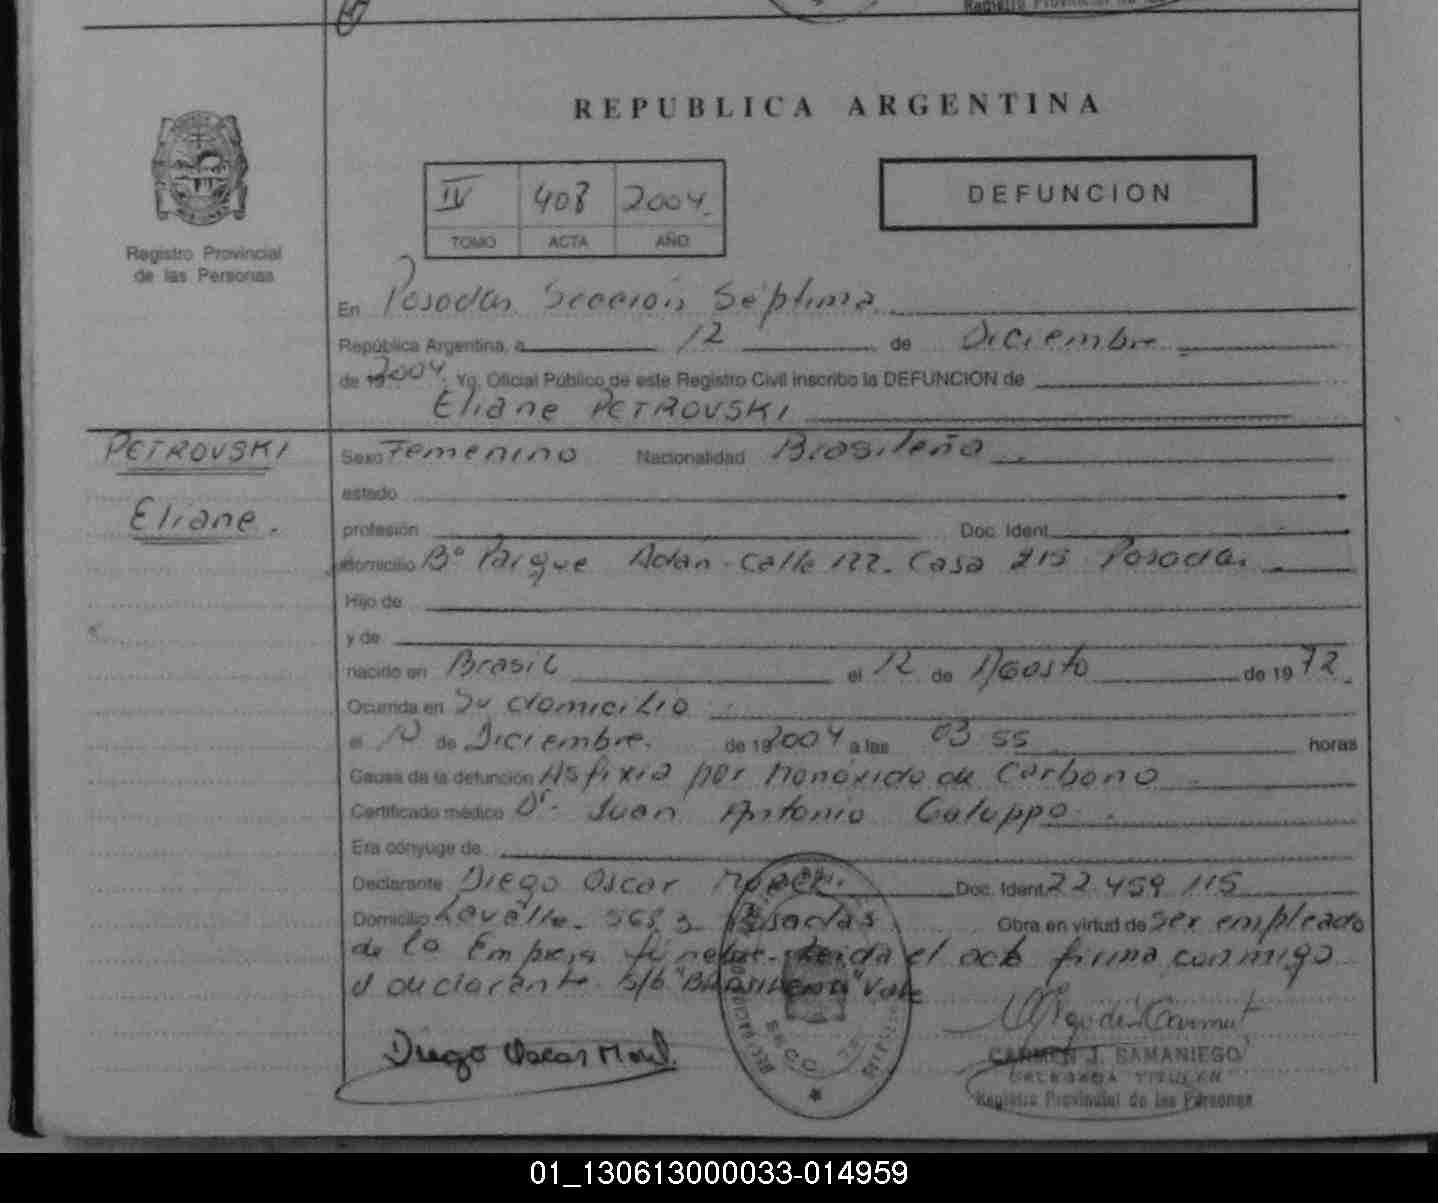 Registro Provincial de las
REPUBLICA ARGENTINA
IV 408 2004.
TOMO ACTA AÑO
DEFUNCION
Registro Provincial
de las Personas
En Posadas Sección Séptima
República Argentina, a 12 de Diciembre
de 19 2004. Yo, Oficial Público de este Registro Civil inscribo la DEFUNCION de
Eliane PETROVSKI
PETROVSKI
Eliane.
Sexo Femenino Nacionalidad Brasileña
estado
profesión Doc. Ident.
domicilio Bº Parque Adán - Calle 122. Casa 215 Posadas
Hijo de
y de
nacido en Brasil el 12 de Agosto de 19 72.
Ocurrida en Su domicilio
el de Diciembre. de 19 2004 a las 03 55 horas
Causa de la defunción Asfixia por Monóxido de Carbono
Certificado médico Dr. Juan Antonio Galuppo
Era cónyuge de
Declarante Diego Oscar Doc. Ident. 22.459.115
Domicilio Lavalle. Posadas Obra en virtud de Ser empleado
de la Empresa fúnebre. Leida el acta firma conmigo
el declarante S/b "BRASILEÑA" Vale
Diego Oscar
CARMEN J. SAMANIEGO
DELEGADA TITULAR
Registro Provincial de las Personas
01_130613000033-014959